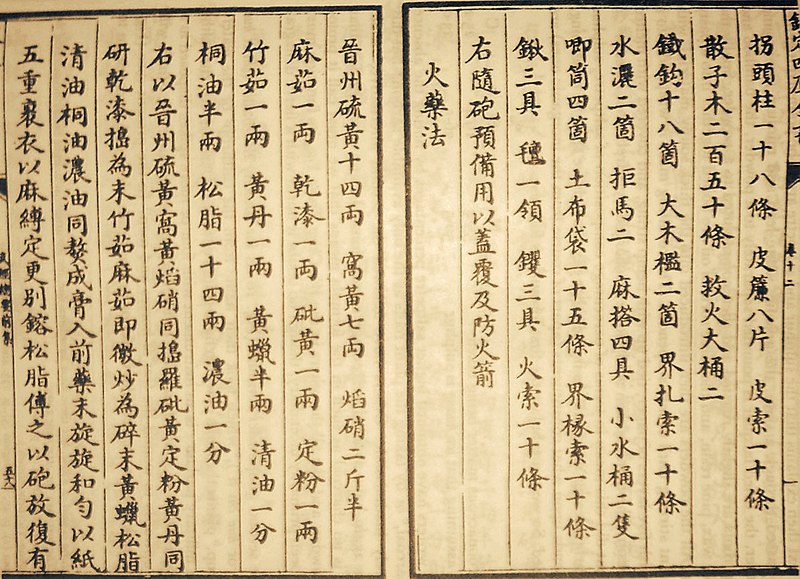 拐頭柱一十八條　皮簾八片　皮索一十條
散子木二百五十條　救火大桶二
鐵鈎十八箇　大木檻二箇　界扎索一十條
水灑二箇　拒馬二　麻搭四具　小水桶二隻
唧筒四箇　土布袋一十五條　界椽索一十條
鍬三具　氊一領　钁三具　火索一十條
右隨砲預備用以蓋覆及防火箭
火藥法
晉州硫黃十四兩　窩黃七兩　焰硝二斤半
麻茹一兩　乾漆一兩　砒黃一兩　定粉一兩
竹茹一兩　黃丹一兩　黃蠟半兩　清油一分
桐油半兩　松脂一十四兩　濃油一分
右以晉州硫黃窩黃焰硝同搗羅砒黃定粉黃丹同
研乾漆搗為末竹茹麻茹即微炒為碎末黃蠟松脂
清油桐油濃油同熬成膏入前藥末旋旋和勻以紙
五重裹衣以麻縛定更别鎔松脂傅之以砲放復有